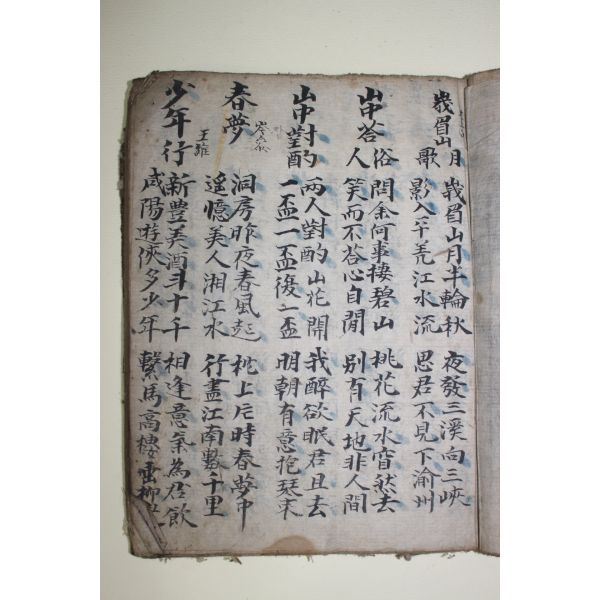 峩眉山月歌
峩眉山月半輪秋
影入平羌江水流
夜發三溪向三峽
思君不見下渝州
山中荅俗人
問余何事棲碧山
笑而不荅心自閒
桃花流水窅然去
別有天地非人間
山中對酌
兩人對酌山花開
一盃一盃後一盃
我醉欲眠君且去
明朝有意抱琴来
春夢
洞房昨夜春風起
遥憶美人湘江水
枕上片時春夢中
行盡江南數千里
少年行
王維
新豊美酒斗十千
咸陽遊俠多少年
相逢意氣為君飲
繫馬高樓垂柳边